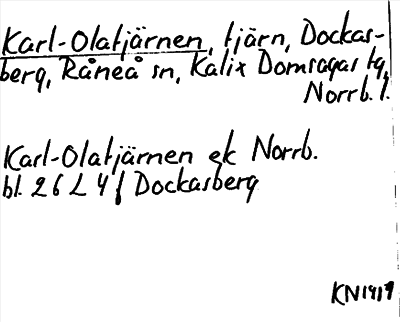 Karl-Olatjärnen, tjärn, Dockas-
berg, Råneå sn, Kalix Domsagas tg,
Norrb. l.
Karl-Olatjärnen ek Norrb.
bl. 26 L 4 f Dockasberg